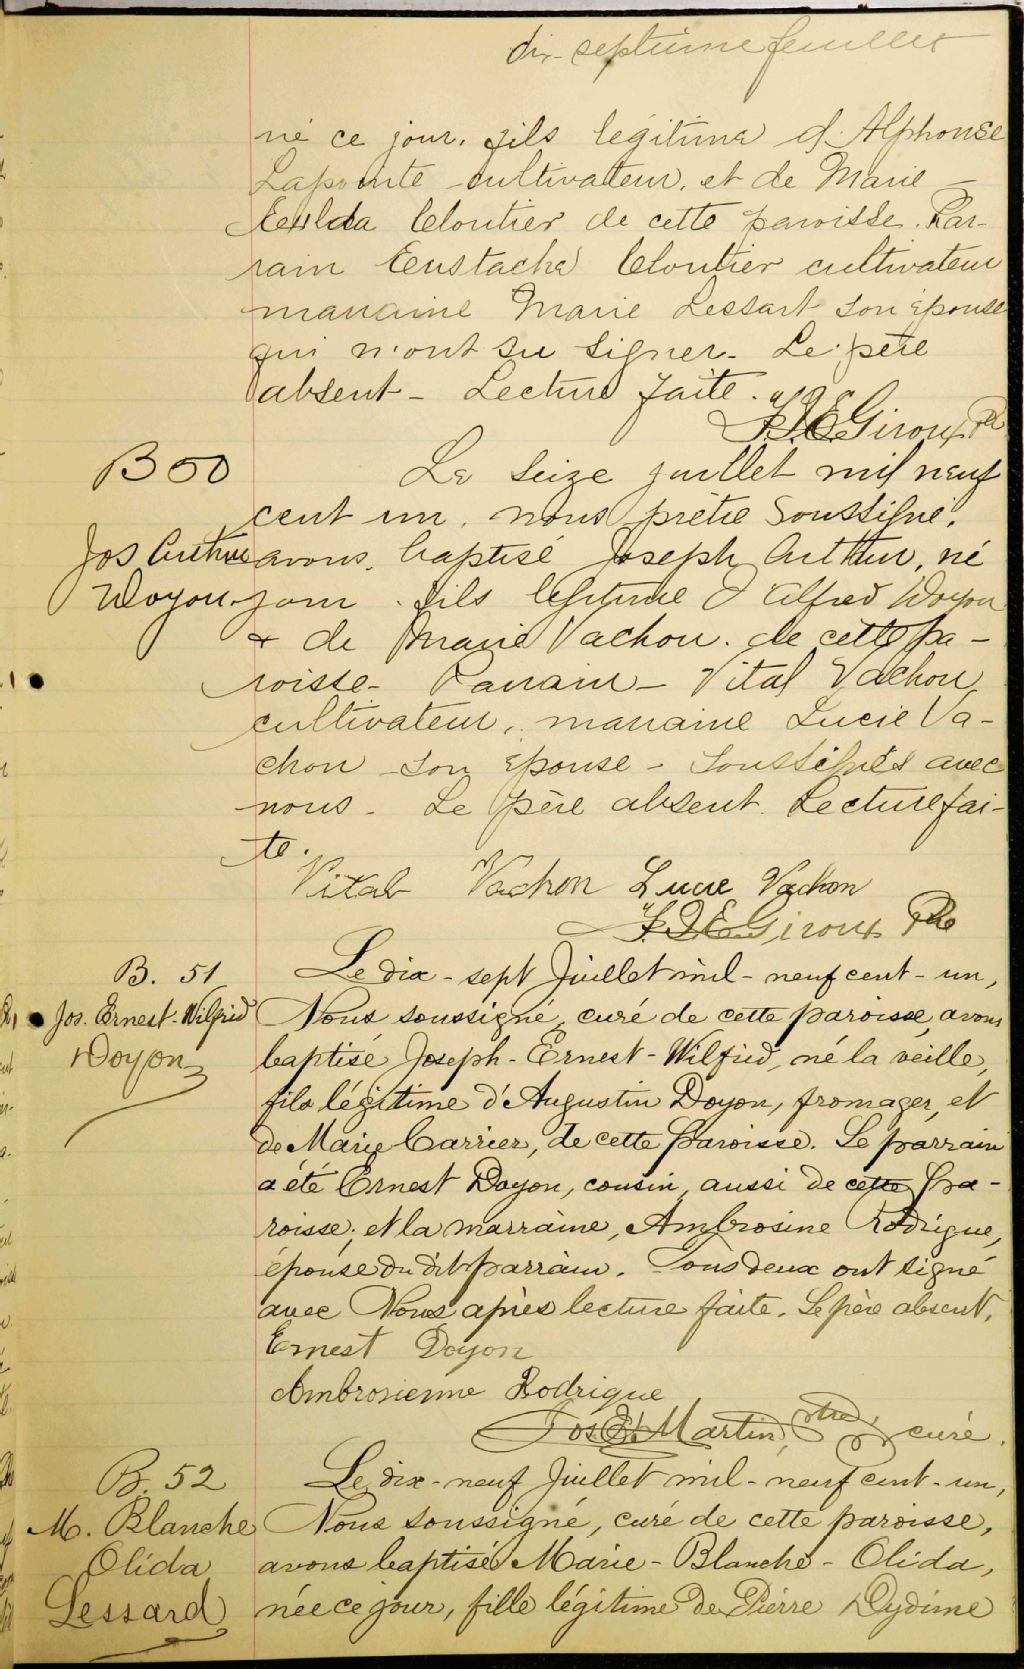 dix-septième feuillet
né ce jour. fils légitime d'Alphonse
Lapointe cultivateur, et de Marie
Cloutier de cette paroisse. Par-
rain Eustache Cloutier cultivateur
marraine Marie Lessart son épouse
qui n'ont su signer. Le père
absent - Lecture faite.
F.X.E Giroux Ptr
B 50
Le Seize juillet mil neuf
cent un, nous prêtre Soussigné,
Jos Arthur
avons, baptisé Joseph Arthur, né
Doyon
jour. fils légitime d'Alfred Doyon
& de Marie Vachon. de cette pa-
roisse - Parrain - Vital Vachon
cultivateur, marraine Lucie Va-
chon son épouse - soussignés avec
nous. Le père absent. Lecture fai-
te.
Vital Vachon Lucie Vachon
Giroux Ptre
B. 51
Le dix-sept Juillet mil-neuf cent-un,
Jos. Ernest-Wilfrid
Nous soussigné, curé de cette paroisse, avons
Doyon
baptisé Joseph-Ernest-Wilfrid, né la veille,
fils légitime d'Augustin Doyon, fromager, et
de Marie Carrier, de cette paroisse. Le parrain
a été Ernest Doyon, cousin, aussi de cette pa-
roisse; et la marraine, Ambrosine Rodrigue,
épouse du dit parrain. Tous deux ont signé
avec Nous après lecture faite. Le père absent.
Ernest Doyon
Ambrosienne Rodrigue
Jos E. Martin, ptre, curé.
B. 52
Le dix-neuf Juillet mil-neuf cent-un,
M. Blanche
Nous soussigné, curé de cette paroisse,
Olida
avons baptisé Marie-Blanche-Olida,
Lessard
née ce jour, fille légitime de Pierre Dydime